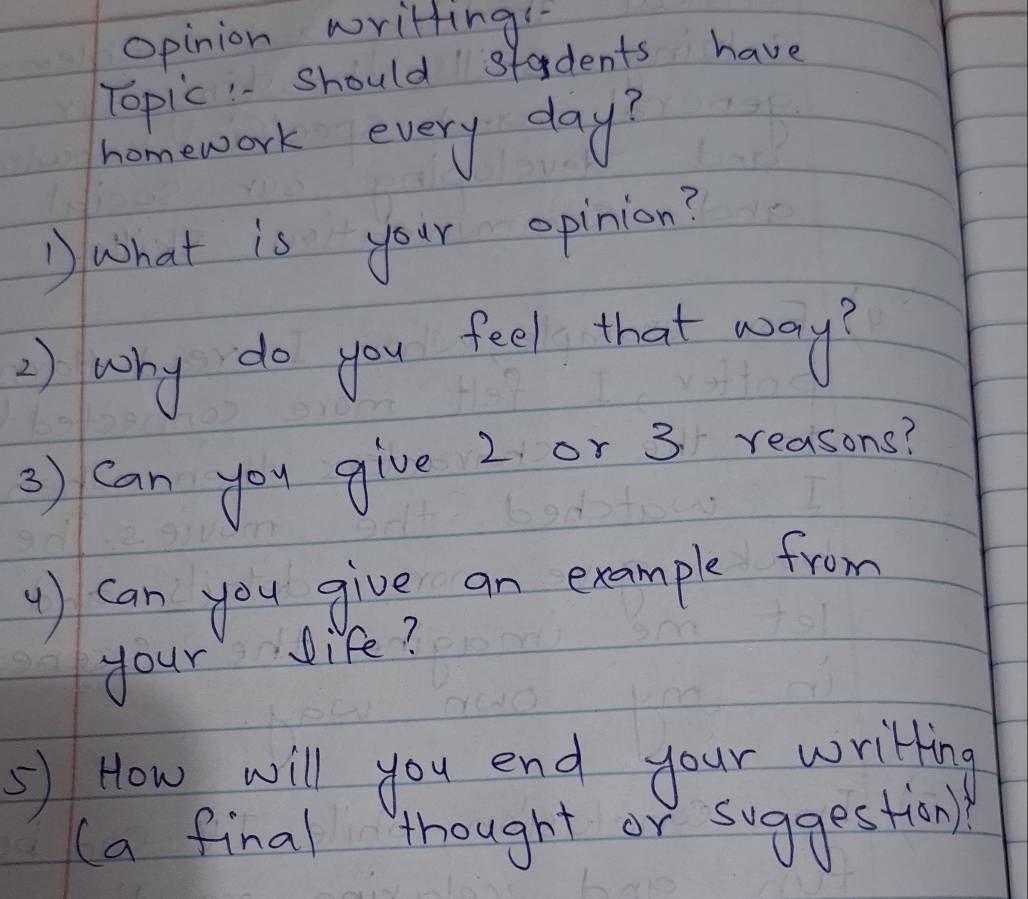 Opinion writting:-
Topic :- Should students have
homework every day?
1) What is your opinion?
2) Why do you feel that way?
3) Can you give 2 or 3 reasons?
4) Can you give an example from
your life?
5) How will you end your writting
(a final thought or suggestion)?